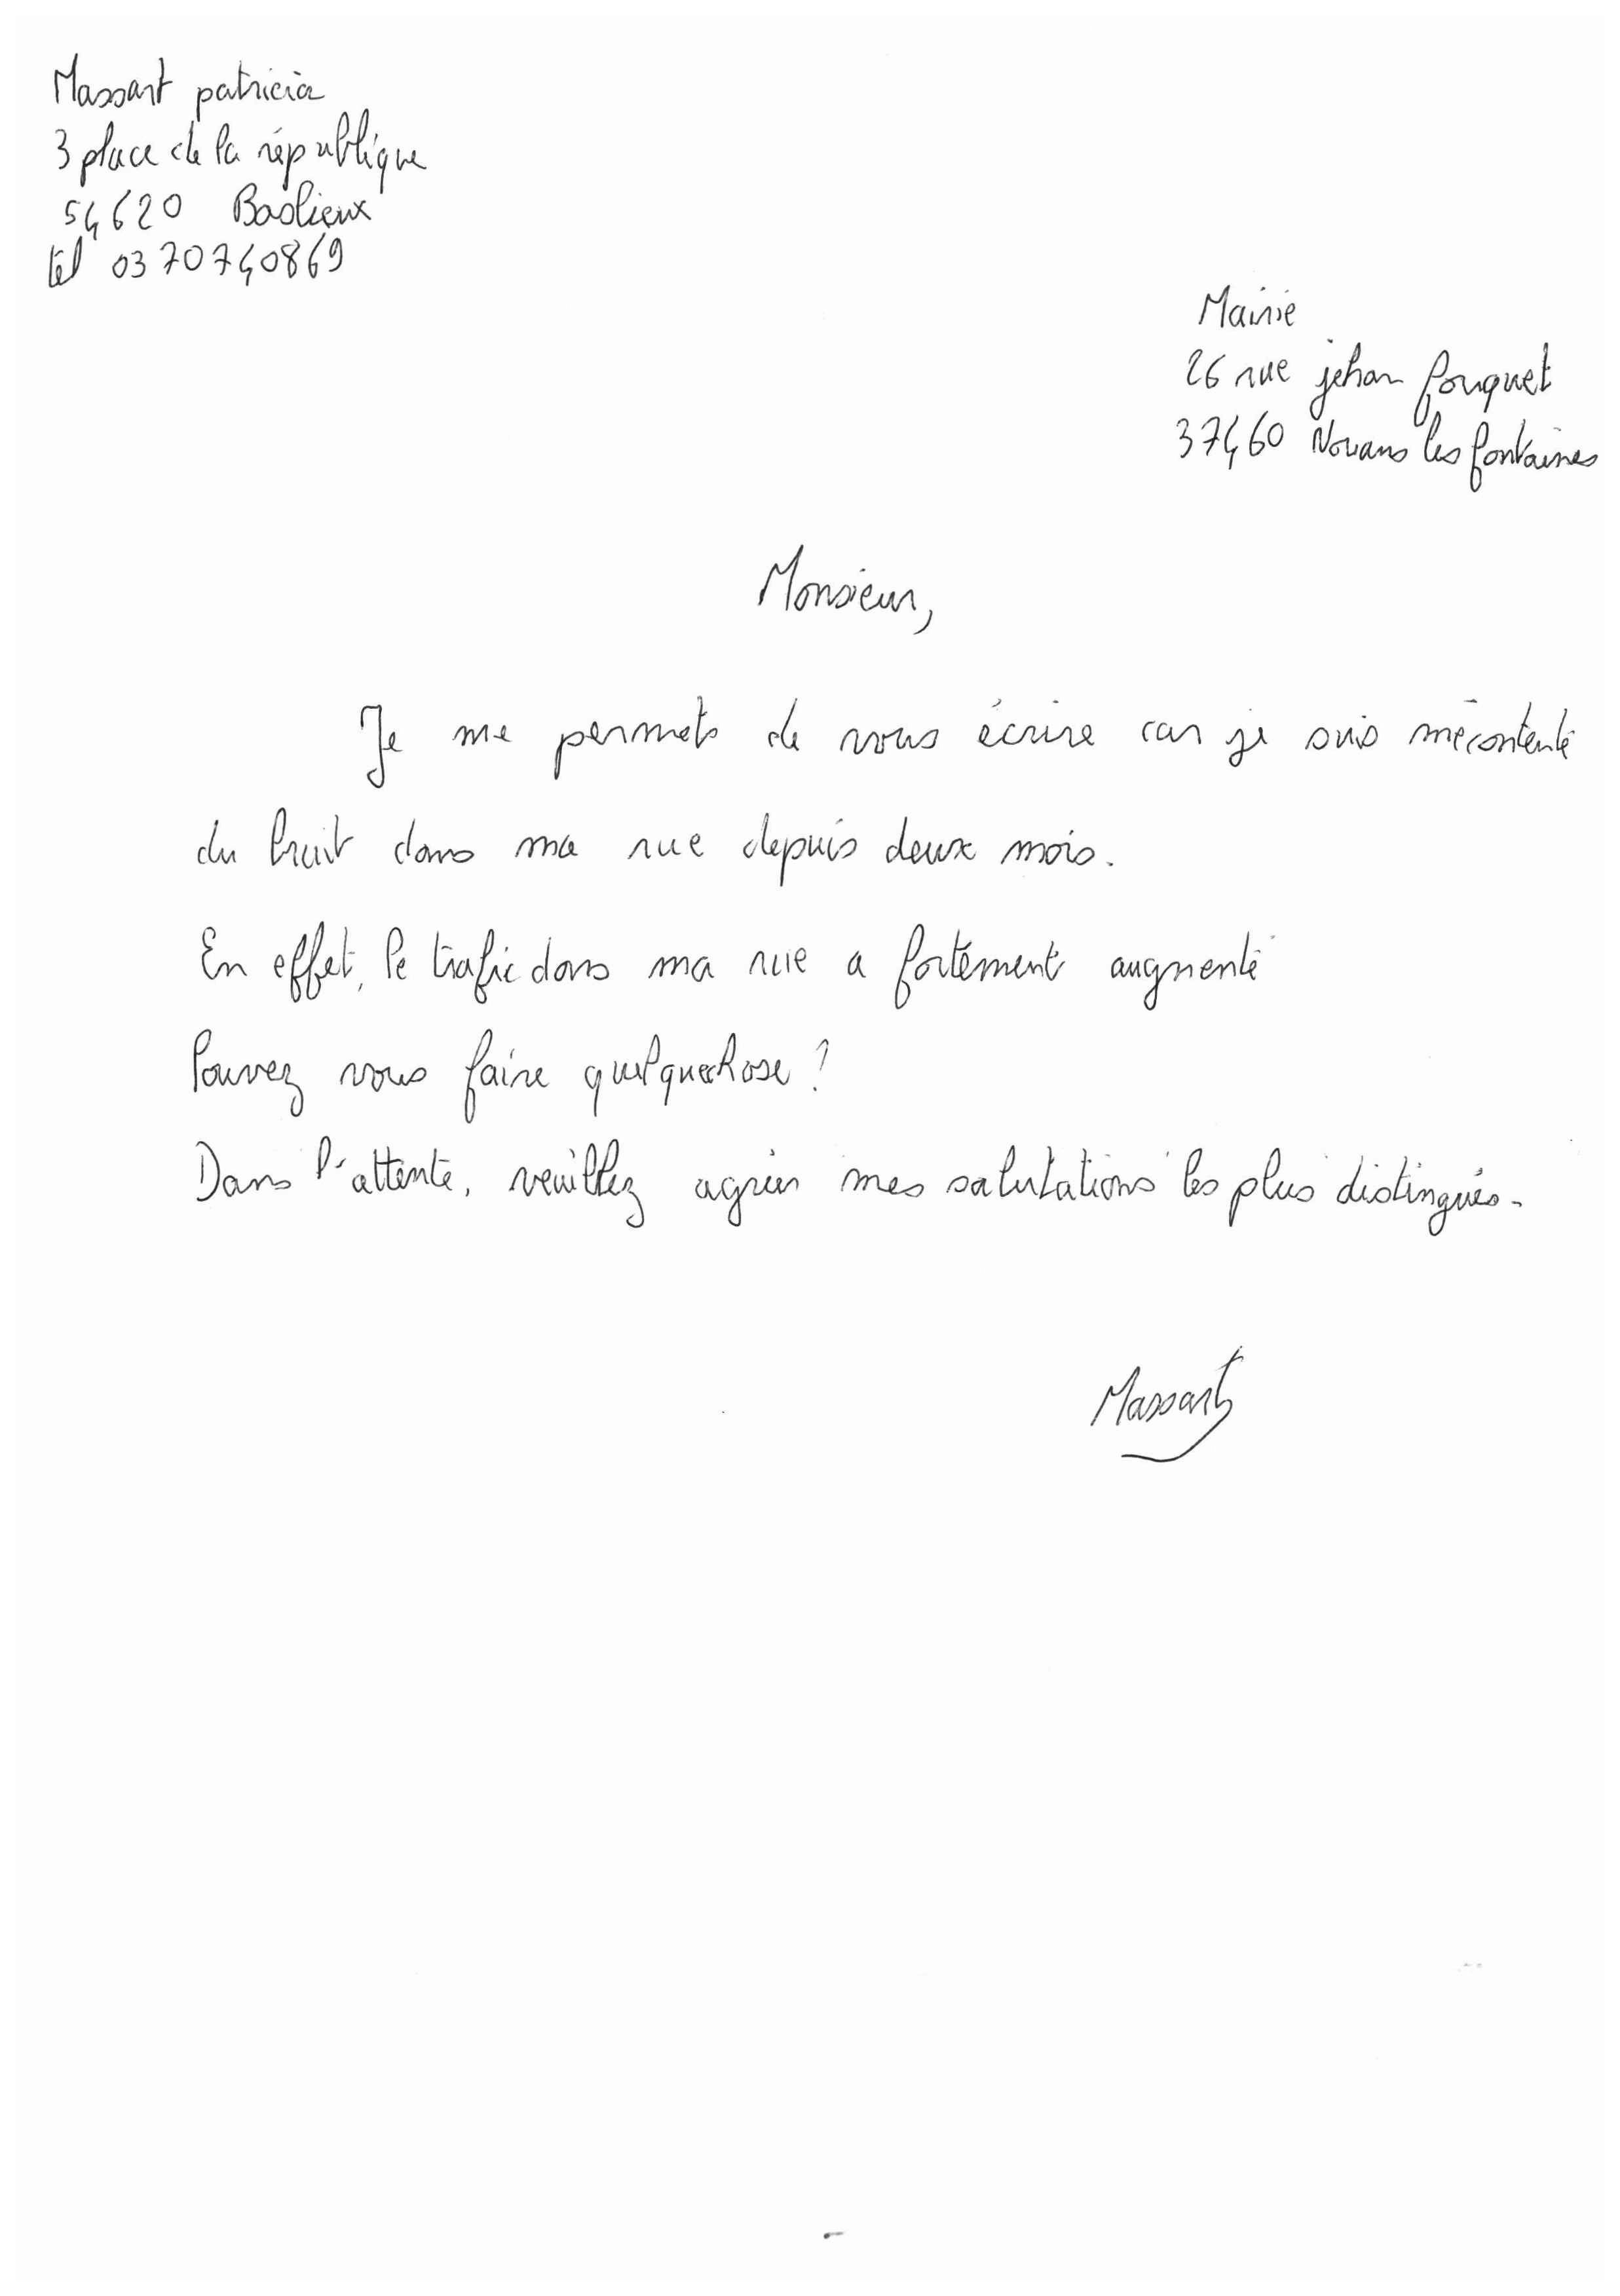 Massart patricia
3 place de la république
54620 Baslieux
tél 0370740869
Mairie
26 rue jehan fouquet
37460 Nouans les fontaines
Monsieur,
Je me permets de vous écrire car je suis mécontente
du bruit dans ma rue depuis deux mois.
En effet, le trafic dans ma rue a fortement augmenté
Pouvez vous faire quelquechose ?
Dans l'attente, veuillez agréer mes salutations les plus distingués.
Massart